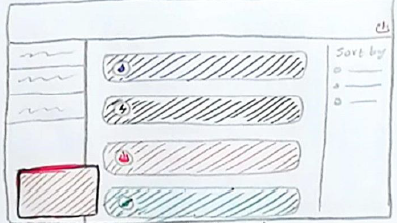 Sort by